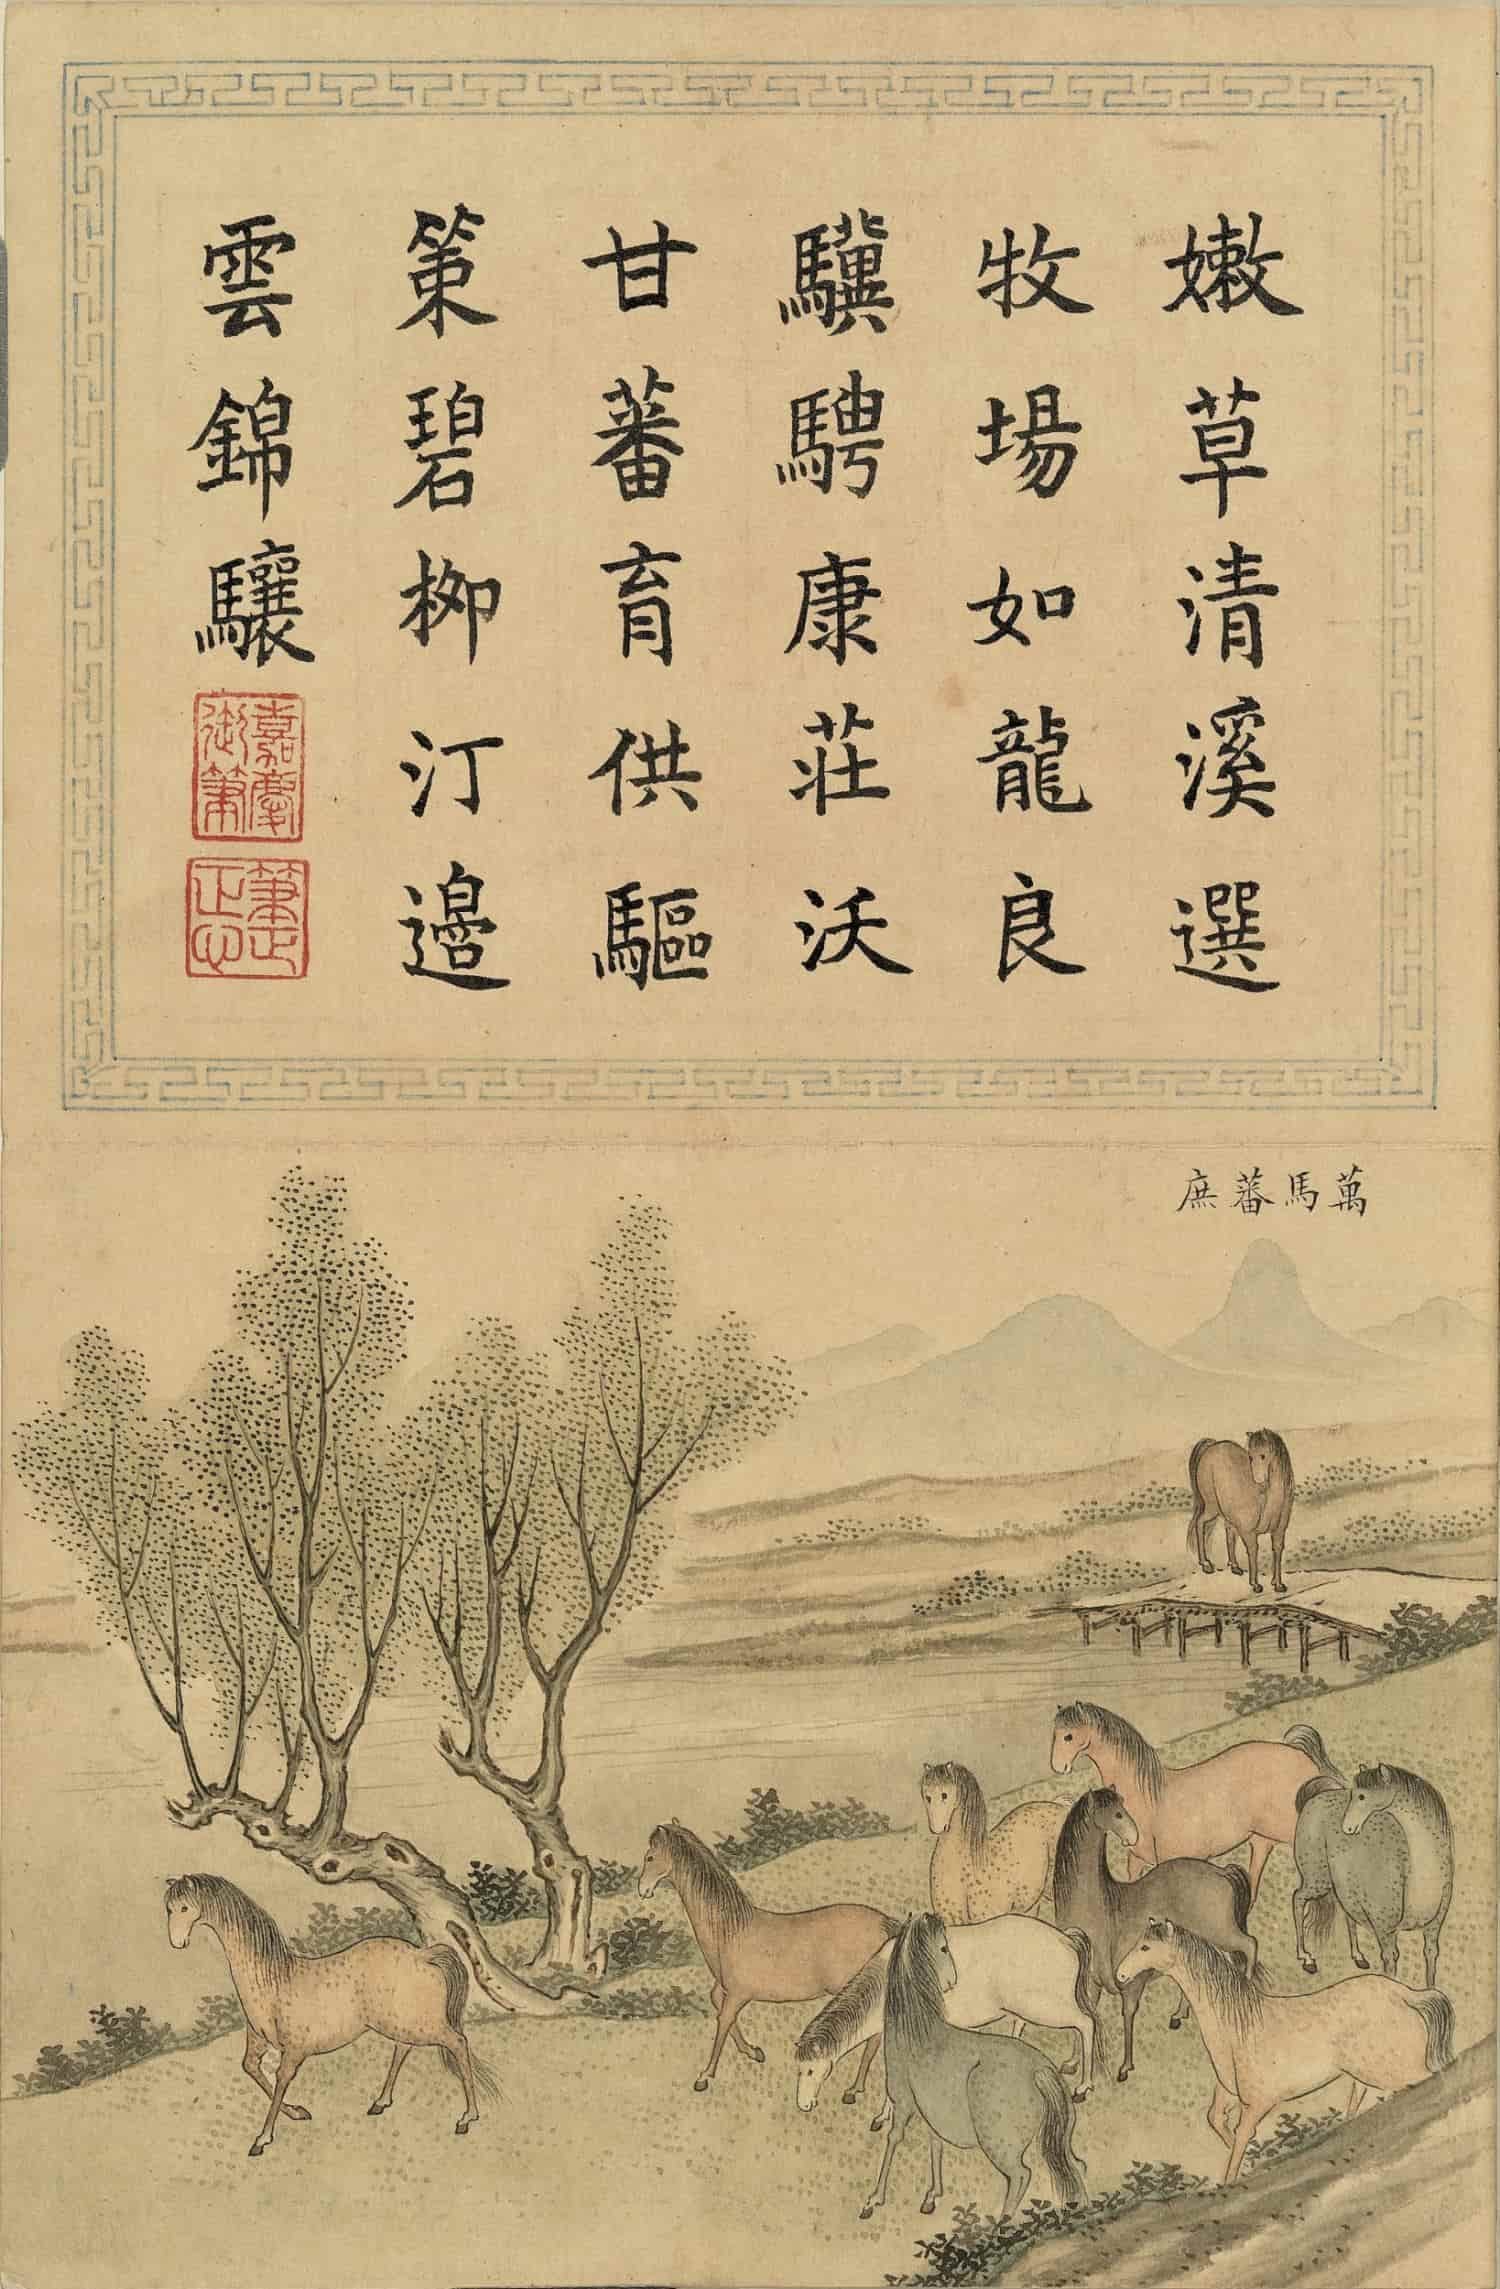 嫩草清溪選
牧場如龍良
驥騁康莊沃
甘蕃育供驅
策碧柳汀邊
雲錦驤
嘉慶
御筆
筆正
心正
萬馬蕃庶